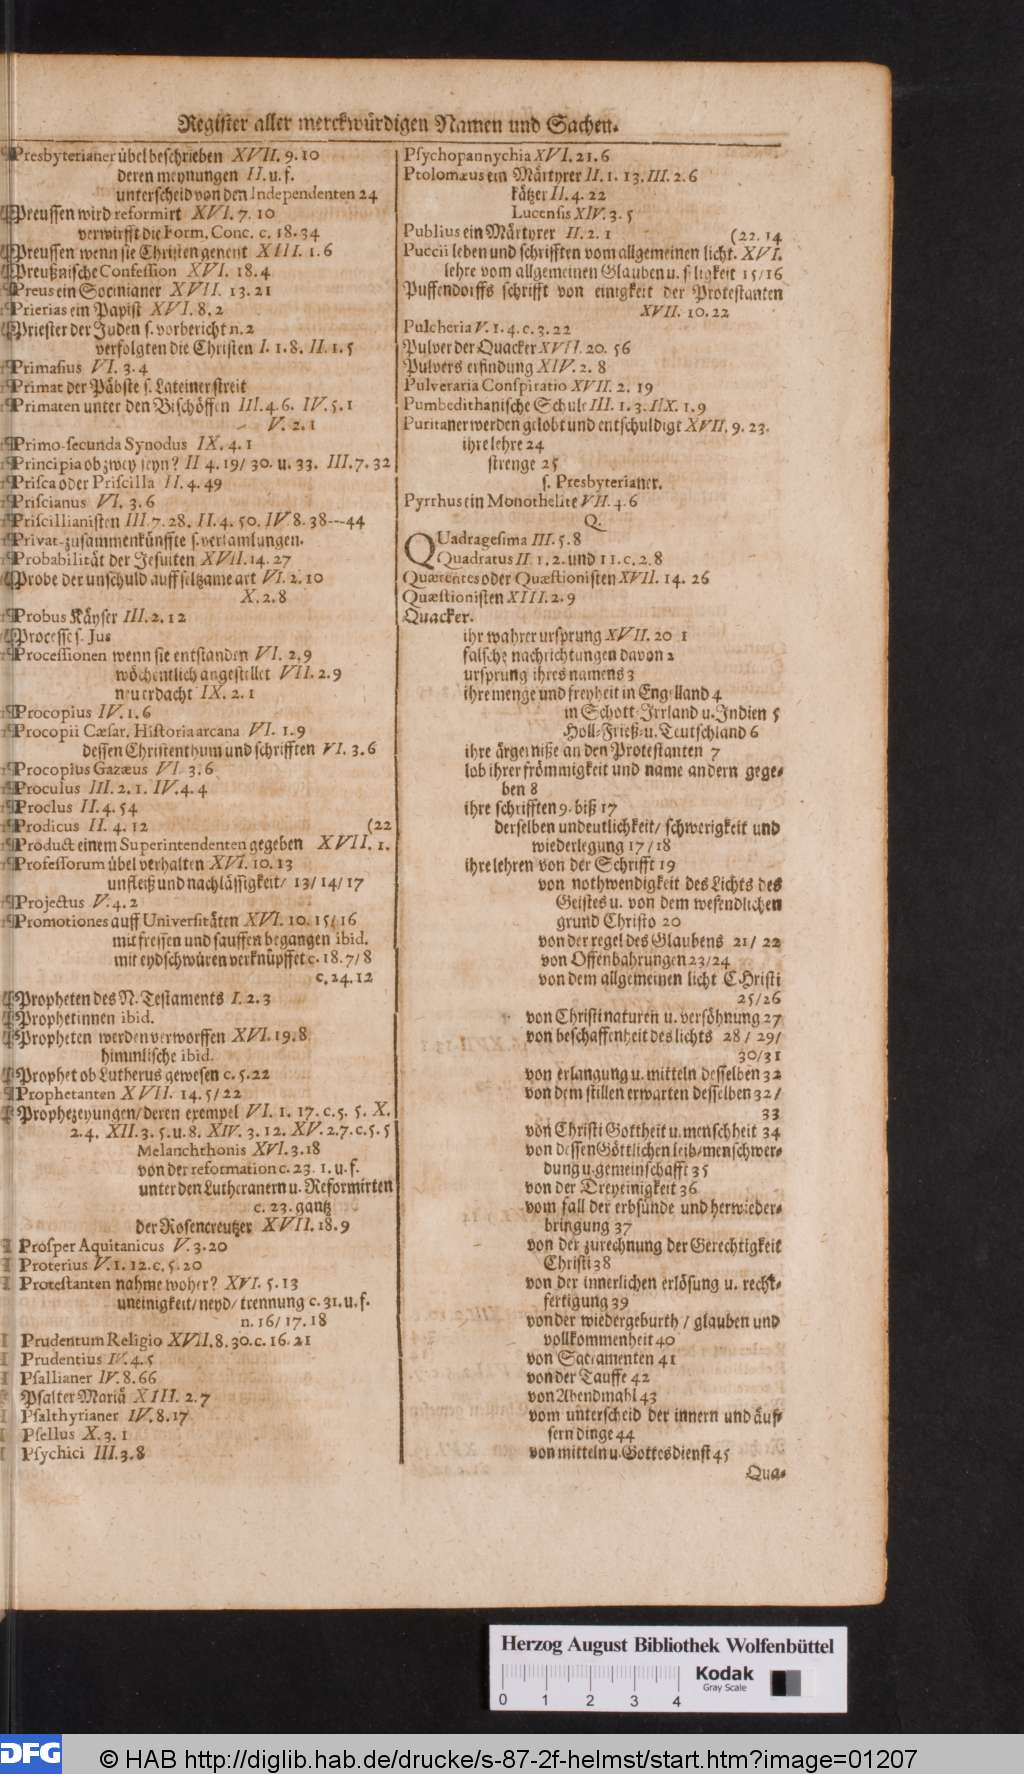 Register aller merckwürdigen Namen und Sachen.
Presbyterianer übel beschrieben XVII. 9. 10
deren meynungen 11. u. f.
unterscheid von den Independenten 24
Preussen wird reformirt XVI. 7. 10
verwirfft die Form. Conc. c. 18. 34
Preussen wenn sie Christen genent XIII. 1. 6
Preußnische Confession XVI. 18. 4
Preus ein Socinianer XVII. 13. 21
Prierias ein Papist XVI. 8. 2
Priester der Juden s. vorbericht n. 2
verfolgten die Christen I. 1. 8. II. 1. 5
Primasius VI. 3. 4
Primat der Päbste s. Lateiner streit
Primaten unter den Bischöffen III. 4. 6. IV. 5. 1
V. 2. 1
Primo-secunda Synodus IX. 4. 1
Principia ob zwey seyn? II 4. 19/ 30. u. 33. III. 7. 32
Prisca oder Priscilla II. 4. 49
Priscianus VI. 3. 6
Priscillianisten III. 7. 28. II. 4. 50. IV. 8. 38---44
Privat-zusammenkünffte s. versamlungen.
Probabilität der Jesuiten XVII. 14. 27
Probe der unschuld auff seltzame art VI. 2. 10
X. 2. 8
Probus Käyser III. 2. 12
Processe s. Jus
Processionen wenn sie entstanden VI. 2. 9
wöchentlich angestellet VII. 2. 9
neu erdacht IX. 2. 1
Procopius IV. 1. 6
Procopii Cæsar. Historia arcana VI. 1. 9
dessen Christenthum und schrifften VI. 3. 6
Procopius Gazæus VI 3. 6
Proculus III. 2. 1. IV. 4. 4
Proclus II. 4. 54
Prodicus II. 4. 12 (22
Product einem Superintendenten gegeben XVII. 1.
Professorum übel verhalten XVI. 10. 13
unfleiß und nachlässigkeit/ 13/ 14/ 17
Projectus V. 4. 2
Promotiones auff Universitäten XVI. 10. 15/ 16
mit fressen und sauffen begangen ibid.
mit eydschwüren verknüpffet c. 18. 7/ 8
c. 24. 12
Propheten des N. Testaments I. 2. 3
Prophetinnen ibid.
Propheten werden verworffen XVI. 19. 8
himmlische ibid.
Prophet ob Lutherus gewesen c. 5. 22
Prophetanten XVII. 14. 5/ 22
Prophezeyungen/ deren exempel VI. 1. 17. c. 5. 5. X.
2. 4. XII. 3. 5. u. 8. XIV. 3. 12. XV. 2. 7. c. 5. 5
Melanchthonis XVI. 3. 18
von der reformation c. 23. 1. u. f.
unter den Lutheranern u. Reformirten
c. 23. gantz
der Rosencreutzer XVII. 18. 9
Prosper Aquitanicus V. 3. 20
Proterius V. 1. 12. c. 5. 20
Protestanten nahme woher? XVI. 5. 13
uneinigkeit/ neyd/ trennung c. 31. u. f.
n. 16/ 17. 18
Prudentum Religio XVII. 8. 30. c. 16. 21
Prudentius IV. 4. 5
Psallianer IV. 8. 66
Psalter Mariä XIII. 2. 7
Psalthyrianer IV. 8. 17
Psellus X. 3. 1
Psychici III. 3. 8
Psychopannychia XVI. 21. 6
Ptolomæus ein Märtyrer II. 1. 13. III. 2. 6
kätzer II. 4. 22
Lucensis XIV. 3. 5
Publius ein Märtyrer II. 2. 1 (22. 14
Puccii leben und schrifften vom allgemeinen licht. XVI.
lehre vom allgemeinen Glauben u. seligkeit 15/ 16
Puffendorffs schrifft von einigkeit der Protestanten
XVII. 10. 22
Pulcheria V. 1. 4. c. 3. 22
Pulver der Quacker XVII. 20. 56
Pulvers erfindung XIV. 2. 8
Pulveraria Conspiratio XVII. 2. 19
Pumbedithanische Schule III. 1. 3. IIX. 1. 9
Puritaner werden gelobt und entschuldigt XVII. 9. 23.
ihre lehre 24
strenge 25
s. Presbyterianer.
Pyrrhus ein Monothelite VII. 4. 6
Q.
QUadragesima III. 5. 8
Quadratus II. 1. 2. und 11. c. 2. 8
Quærentes oder Quæstionisten XVII. 14. 26
Quæstionisten XIII. 2. 9
Quacker.
ihr wahrer ursprung XVII. 20 1
falsche nachrichtungen davon 2
ursprung ihres namens 3
ihre menge und freyheit in Engelland 4
in Schott-Irrland u. Indien 5
Holl-Frieß-u. Teutschland 6
ihre ärgerniße an den Protestanten 7
lob ihrer frömmigkeit und name andern gege-
ben 8
ihre schrifften 9. biß 17
derselben undeutlichkeit/ schwerigkeit und
wiederlegung 17/ 18
ihre lehren von der Schrifft 19
von nothwendigkeit des Lichts des
Geistes u. von dem wesendlichen
grund Christo 20
von der regel des Glaubens 21/ 22
von Offenbahrungen 23/ 24
von dem allgemeinen licht Christi
25/ 26
von Christi naturen u. versöhnung 27
von beschaffenheit des lichts 28/ 29/
30/ 31
von erlangung u. mitteln desselben 32
von dem stillen erwarten desselben 32/
33
von Christi Gottheit u. menschheit 34
von dessen Göttlichen leib/ menschwer-
dung u. gemeinschafft 35
von der Dreyeinigkeit 36
vom fall der erbsünde und herwieder-
bringung 37
von der zurechnung der Gerechtigkeit
Christi 38
von der innerlichen erlösung u. recht-
fertigung 39
von der wiedergeburth/ glauben und
vollkommenheit 40
von Sacramenten 41
von der Tauffe 42
von Abendmahl 43
vom unterscheid der innern und äus-
sern dinge 44
von mitteln u. Gottesdienst 45
Qua-
Herzog August Bibliothek Wolfenbüttel
0 1 2 3 4
Kodak
Gray Scale
DFG
© HAB http://diglib.hab.de/drucke/s-87-2f-helmst/start.htm?image=01207